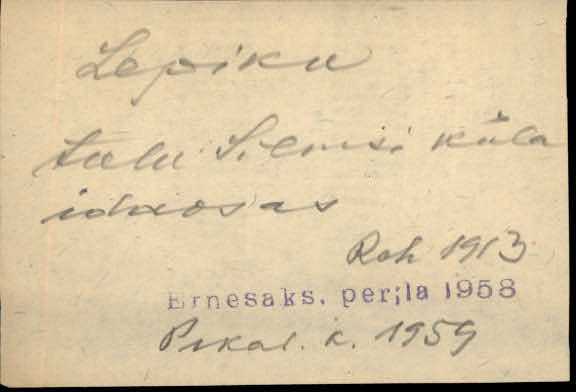 Lepiku
talu Silmsi küla
idaosas
Rah 1913
Ernesaks, per;la 1958
Pikal. k. 1959